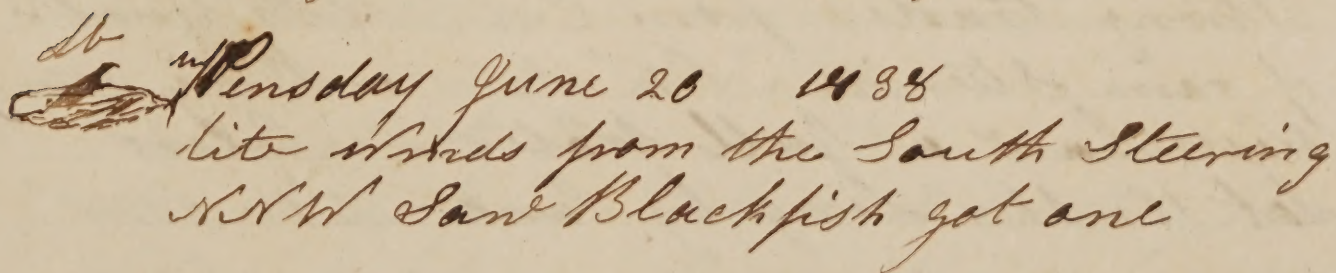 Wensday June 20 1838
lite Winds from the South Steering
NNW Saw Blackfish got one